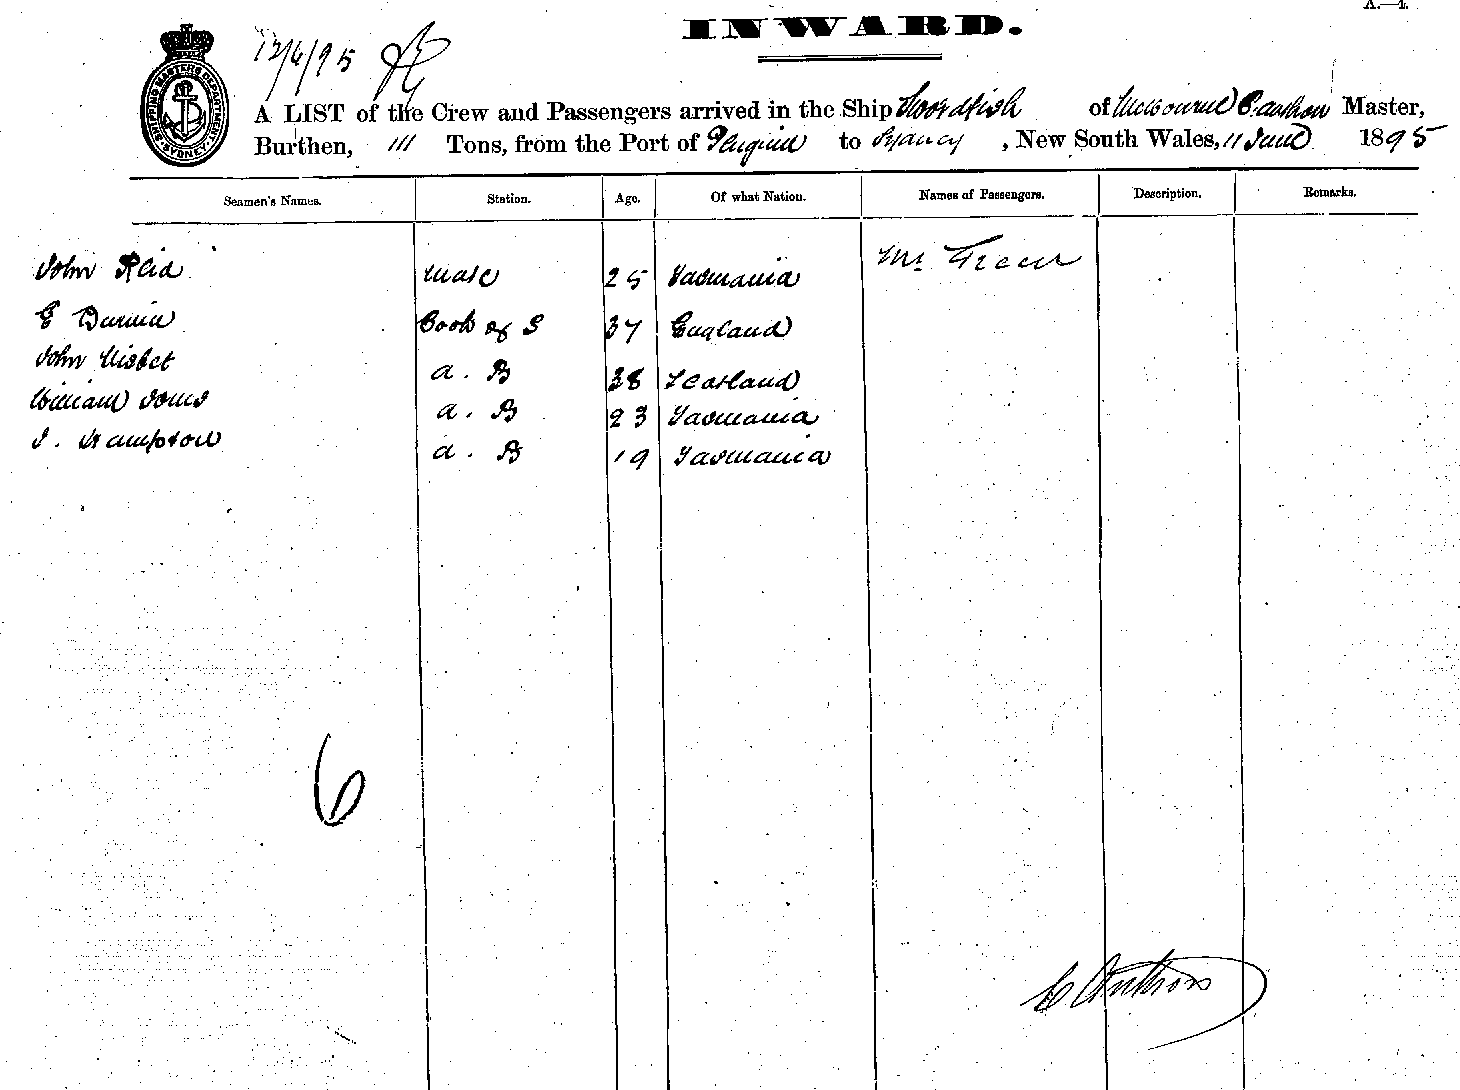 A.—4.
INWARD.
12/6/95
SHIPPING MASTERS DEPARTMENT SYDNEY
A LIST of the Crew and Passengers arrived in the Ship Swordfish of Melbourne C. Anthon Master,
Burthen, 111 Tons, from the Port of Penguin to Sydney, New South Wales, 11 June 1895
Seamen's Names. Station. Age. Of what Nation. Names of Passengers. Description. Remarks.
John Reid Mate 25 Tasmania Mr Green
E Cook & S 37 England
John Nisbet A. B 38 Scotland
William Jones A. B 23 Tasmania
Hampton A. B 19 Tasmania
6
C Anthon